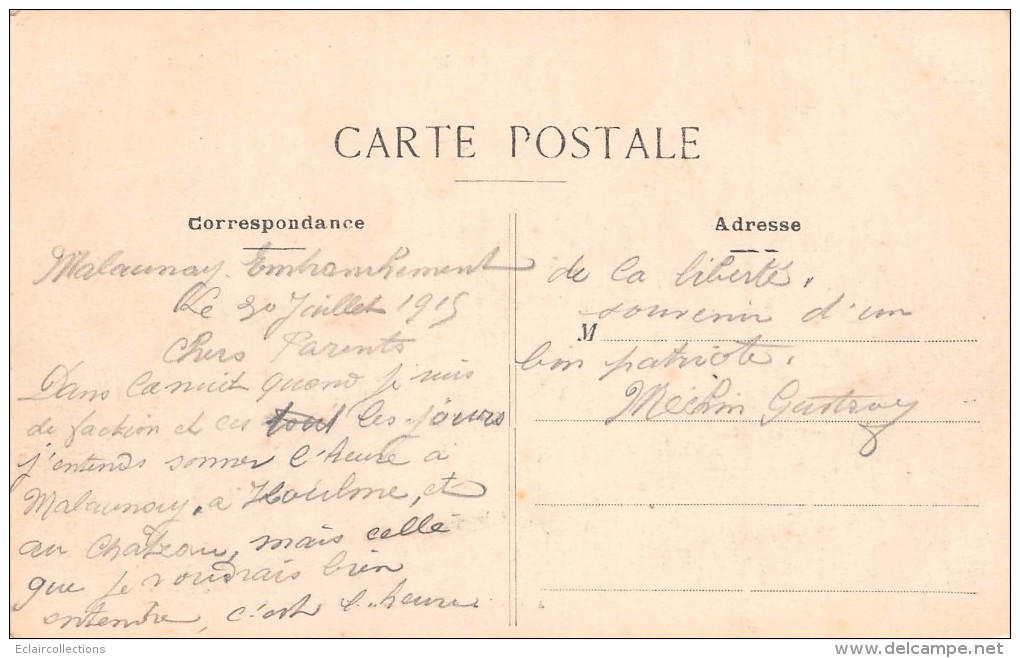 CARTE POSTALE
Correspondance
Malaunay Embranchement
Le 30 Juillet 1915
Chers Parents
Dans la nuit quand je suis
de faction et ces tout les jours
j'entends sonner l'heure à
Malaunay, a Houlme, et
au Chateau, mais celle
que je voudrais bien
entendre, c'est l'heure
Adresse
de la liberté,
souvenir d'un
M
bon patriote.
Méchin Gustave
Eclaircollections
www.delcampe.net